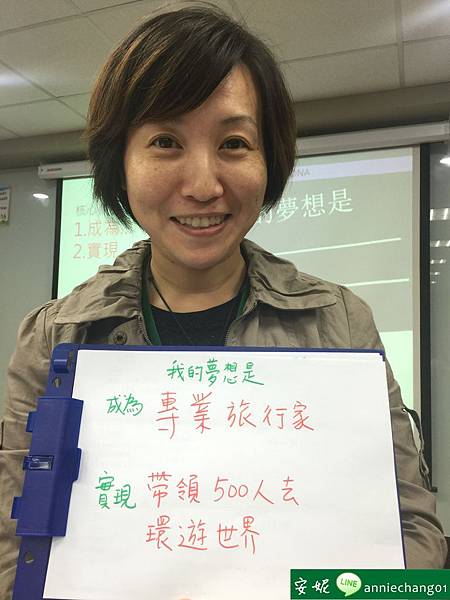 的夢想是
1.成為
2.實現
我的夢想是
成為 專業旅行家
實現 帶領500人去
環遊世界
安妮 LINE anniechang01